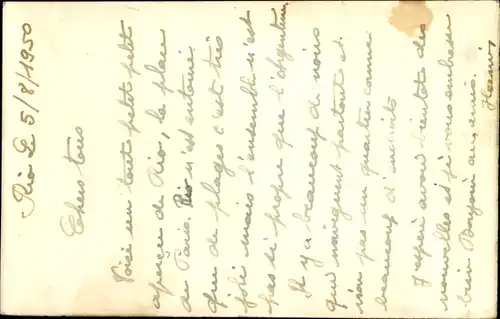 Rio Le 5/8/1950
Chers tous
Voici un tout petit petit
aperçu de Rio, la place
de Paris. Rio n'est entourée
que de plages c'est très
joli mais l'ensemble n'est
pas si propre que l'Argentine.
Il y a beaucoup de noirs
qui naviguent partout et
rien pas un quartier comme
beaucoup d'endroits
J'espère avoir bientôt des
nouvelles et je vous embrasse
bien. Bonjour aux amis.